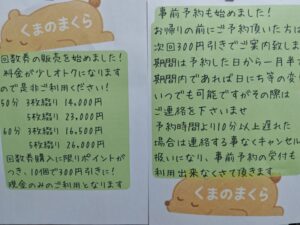 くまのまくら
回数券の販売を始めました!
料金が少しオトクになります
ので是非ご利用ください!
50分 3枚綴り 14,000円
5枚綴り 23,000円
60分 3枚綴り 16,500円
5枚綴り 26,000円
回数券購入に限りポイントが
つき、10個で300円引きに!
現金のみのご利用となります
事前予約も始めました!
お帰りの前にご予約頂いた方は
次回300円引きでご案内致しま
期間は予約した日から一月半
期間内であれば日にち等の変
いつでも可能ですがその際は
ご連絡を下さいませ
予約時間より10分以上遅れた
場合は連絡する事なくキャンセル
扱いになり、事前予約の受付も
利用出来なくさて頂きます
くまのまくら